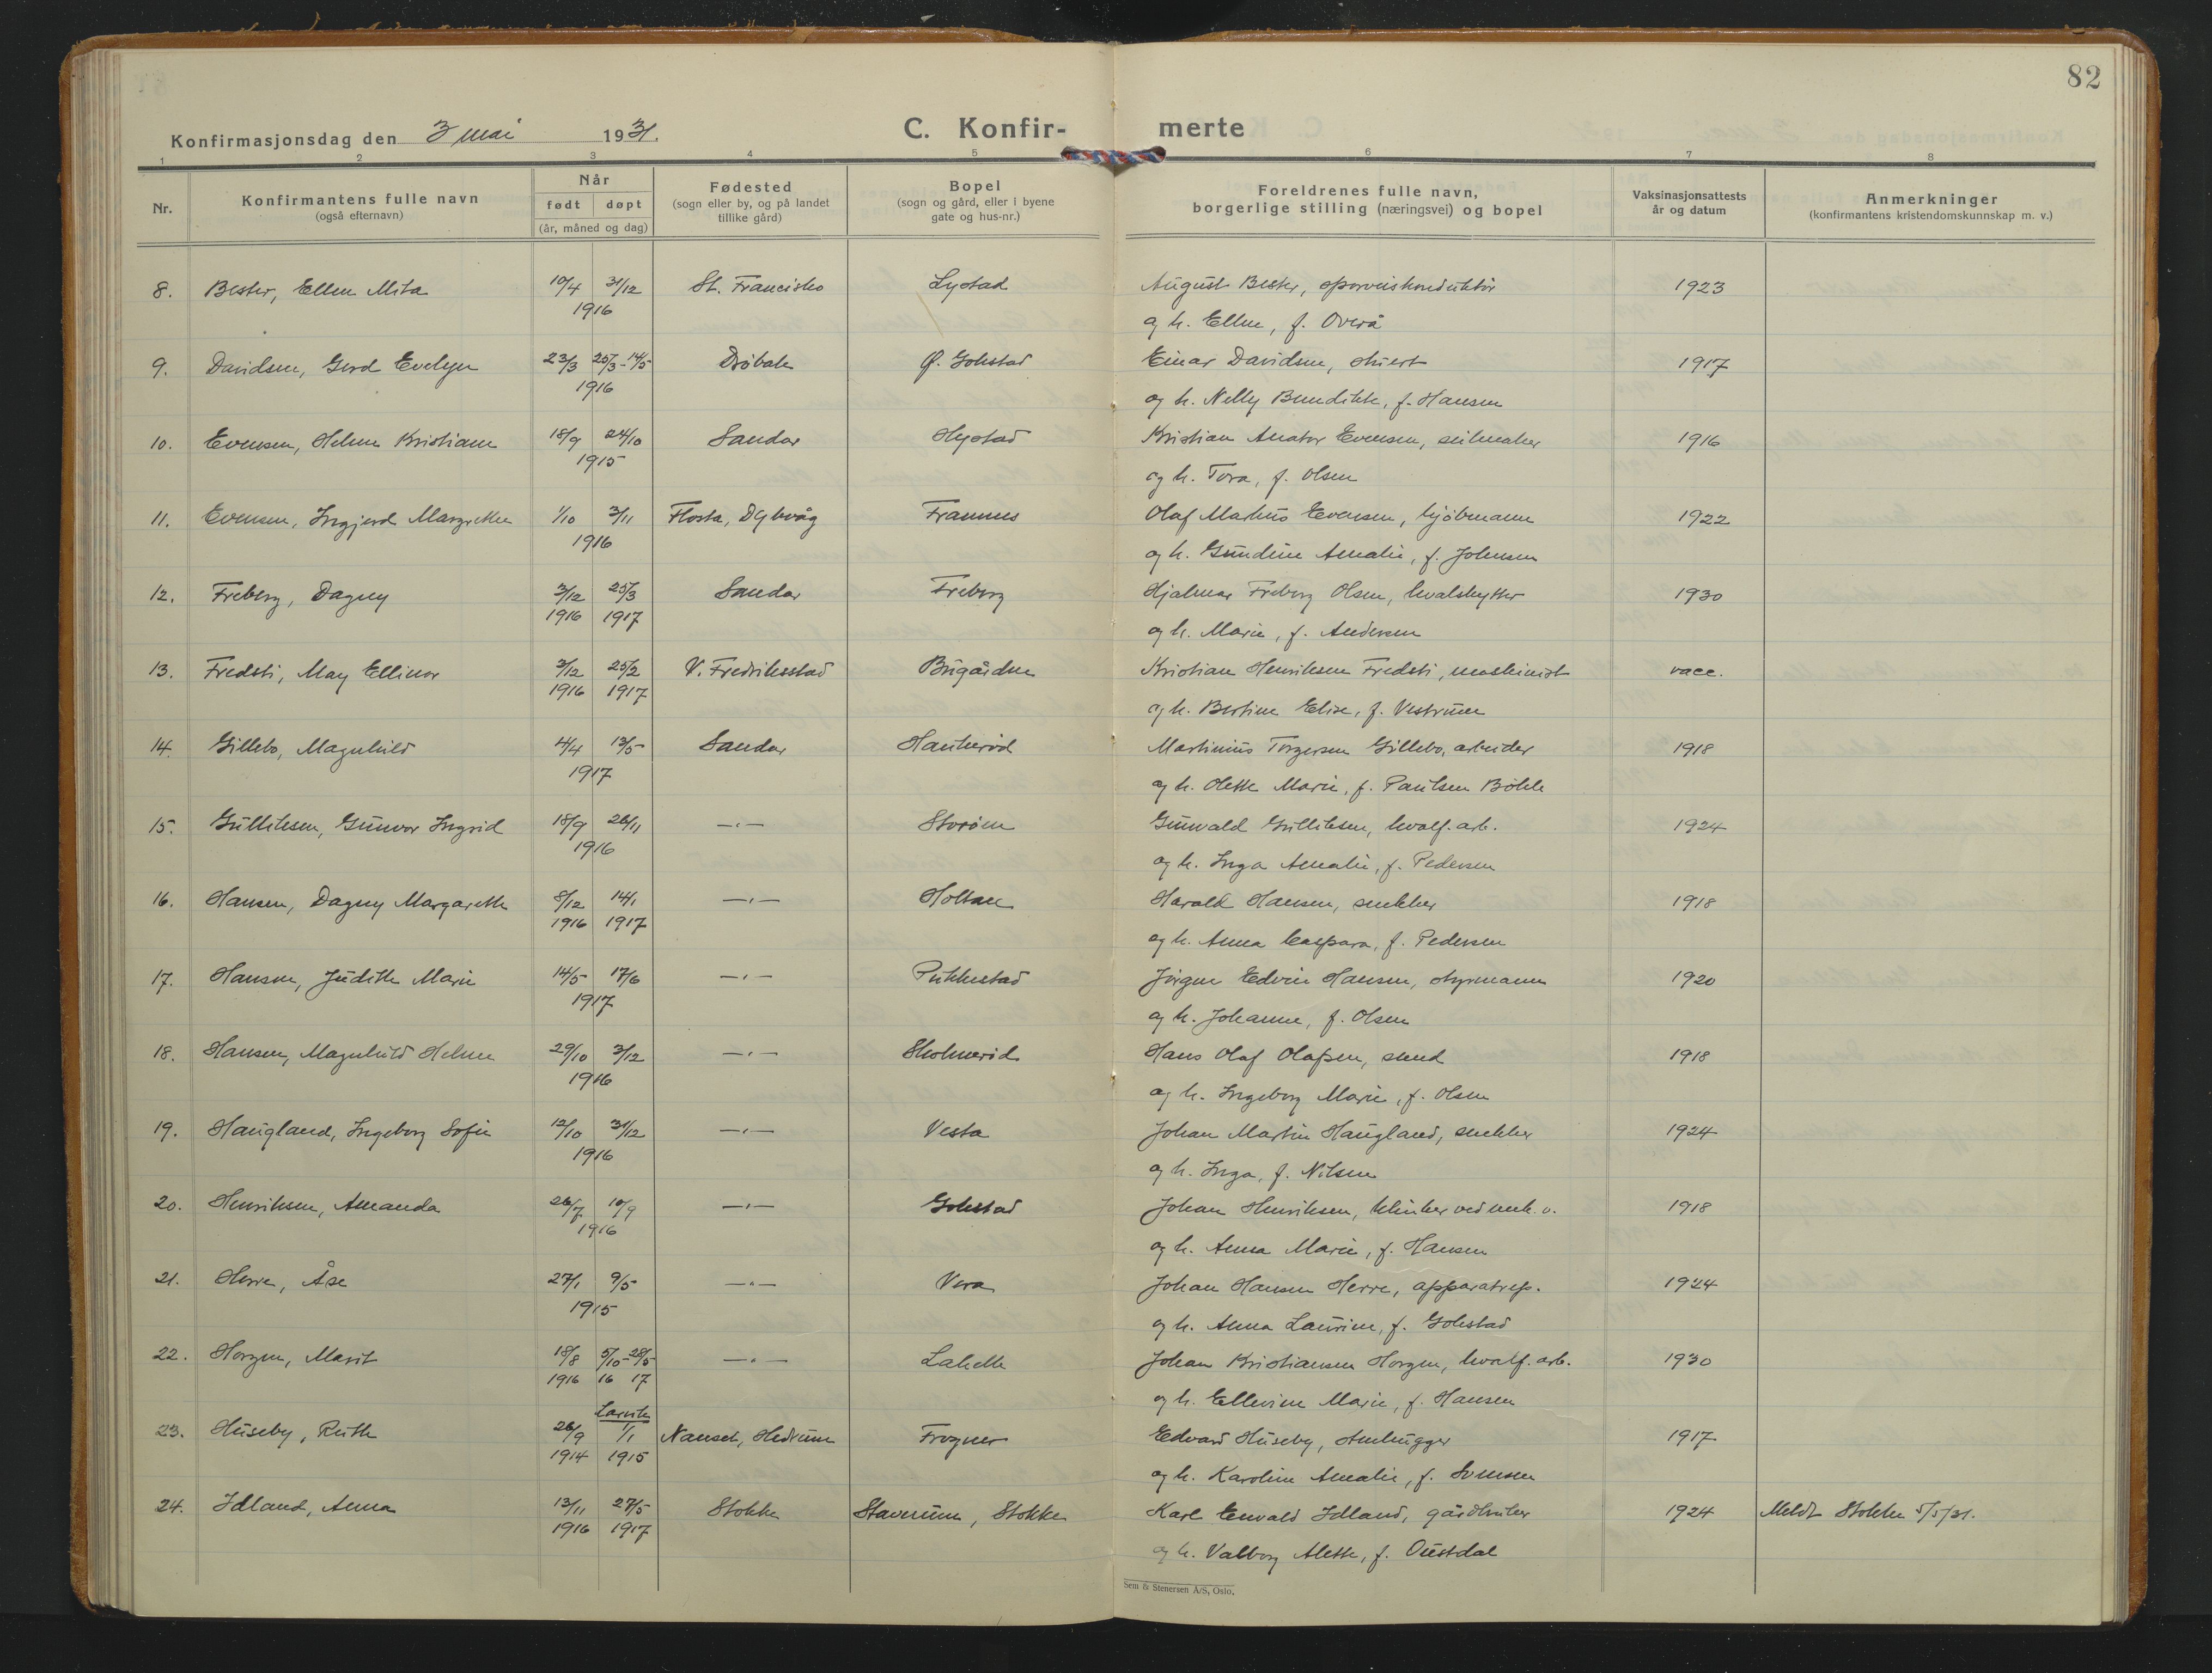 82
Konfirmasjonsdag den 3 mai 1931.
C. Konfir- merte
1 2 3 4 5 6 7 8
Nr.
Konfirmantens fulle navn
(også efternavn)
Når
født døpt
(år, måned og dag)
Fødested
(sogn eller by, og på landet
tillike gård)
Bopel
(sogn og gård, eller i byene
gate og hus-nr.)
Foreldrenes fulle navn,
borgerlige stilling (næringsvei) og bopel
Vaksinasjonsattests
år og datum
Anmerkninger
(konfirmantens kristendomskunnskap m. v.)
8. Bester, Ellen Mita 10/4 31/12 St. Francisko Lystad August Bester, sporveiskonduktør 1923
1916 og h. Ellen, f. Overå
9. Davidsen, Gerd Evelyn 23/3 25/3-14/5 Drøbak Ø. Gokstad Einar Davidsen, stuert 1917
1916 og h. Nelly Bendikke, f. Hansen
10. Evensen, Helene Kristiane 18/9 24/10 Sandar Hystad Kristian Anator Evensen, seilmaker 1916
1915 og h. Tora, f. Olsen
11. Evensen, Ingjerd Margrethe 1/10 3/11 Flosta, Dybvåg Framnes Olaf Markus Evensen, kjøbmann 1922
1916 og h. Gundine Amalie, f. Johnsen
12. Freberg, Dagny 3/12 25/3 Sandar Freberg Hjalmar Freberg Olsen, hvalskytter 1930
1916 1917 og h. Marie, f. Andersen
13. Fredsti, May Ellinor 3/12 25/2 V. Fredriksstad Bugården Kristian Henriksen Fredsti, maskinist vacc.
1916 1917 og h. Bertine Elise, f. Vestrum
14. Gillebo, Magnhild 4/4 13/5 Sandar Haukerød Martinius Torgersen Gillebo, arbeider 1918
1917 og h. Olette Marie, f. Paulsen Bøhle
15. Gulliksen, Gunvor Ingrid 18/9 26/11 —"— Storøen Gunvald Gulliksen, hvalf. arb. 1924
1916 og h. Inga Amalie, f. Pedersen
16. Hansen, Dagny Margarethe 8/12 14/1 —"— Holtan Harald Hansen, snekker 1918
1916 1917 og h. Anna Caspara, f. Pedersen
17. Hansen, Judith Marie 14/5 17/6 —"— Pukkestad Jørgen Edvin Hansen, styrmann 1920
1917 og h. Johanne, f. Olsen
18. Hansen, Magnhild Helene 29/10 3/12 —"— Skolmerød Hans Olaf Olafsen, smed 1918
1916 og h. Ingeborg Marie, f. Olsen
19. Haugland, Ingeborg Sofie 12/10 31/12 —"— Vesta Johan Martin Haugland, snekker 1924
1916 og h. Inga, f. Nilsen
20. Henriksen, Amanda 26/7 10/9 —"— Gokstad Johan Henriksen, klinker ved mek. v. 1918
1916 og h. Anna Marie, f. Hansen
21. Herre, Åse 27/1 9/5 —"— Vera Johan Hansen Herre, apparatrep. 1924
1915 og h. Anna Laurine, f. Gokstad
22. Horgen, Marit 18/8 5/10-28/5 —"— Lahelle Johan Kristiansen Horgen, hvalf. arb. 1930
1916 16 17 og h. Ellevine Marie, f. Hansen
Larvik
23. Huseby, Ruth 26/9 1/1 Nanset, Hedrum Frogner Edvard Huseby, stenhugger 1917
1914 1915 og h. Karoline Amalie, f. Svensen
24. Idland, Anna 13/11 27/5 Stokke Staverum, Stokke Karl Envald Idland, gårdbruker 1924 Meldt Stokke 5/5/31.
1916 1917 og h. Valborg Alette, f. Oustdal
Sem & Stenersen A/S, Oslo.